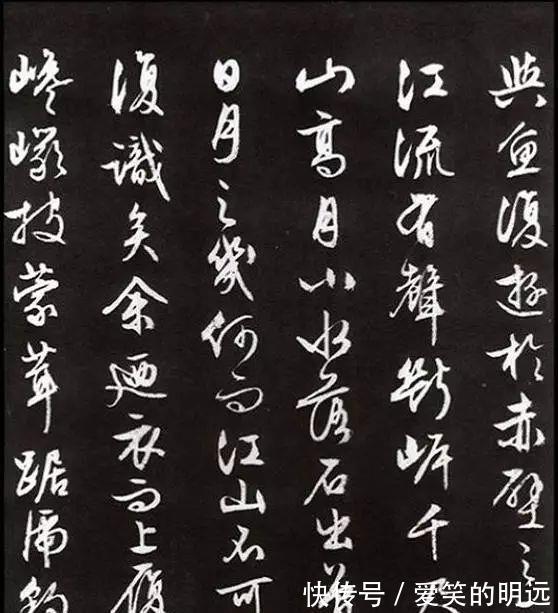 與魚復遊於赤壁之
江流有聲斷岸千
山高月小水落石出曾
日月之幾何而江山不可
復識矣余迺衣而上履
巉巖披蒙茸踞虎豹
快传号 / 爱笑的明远